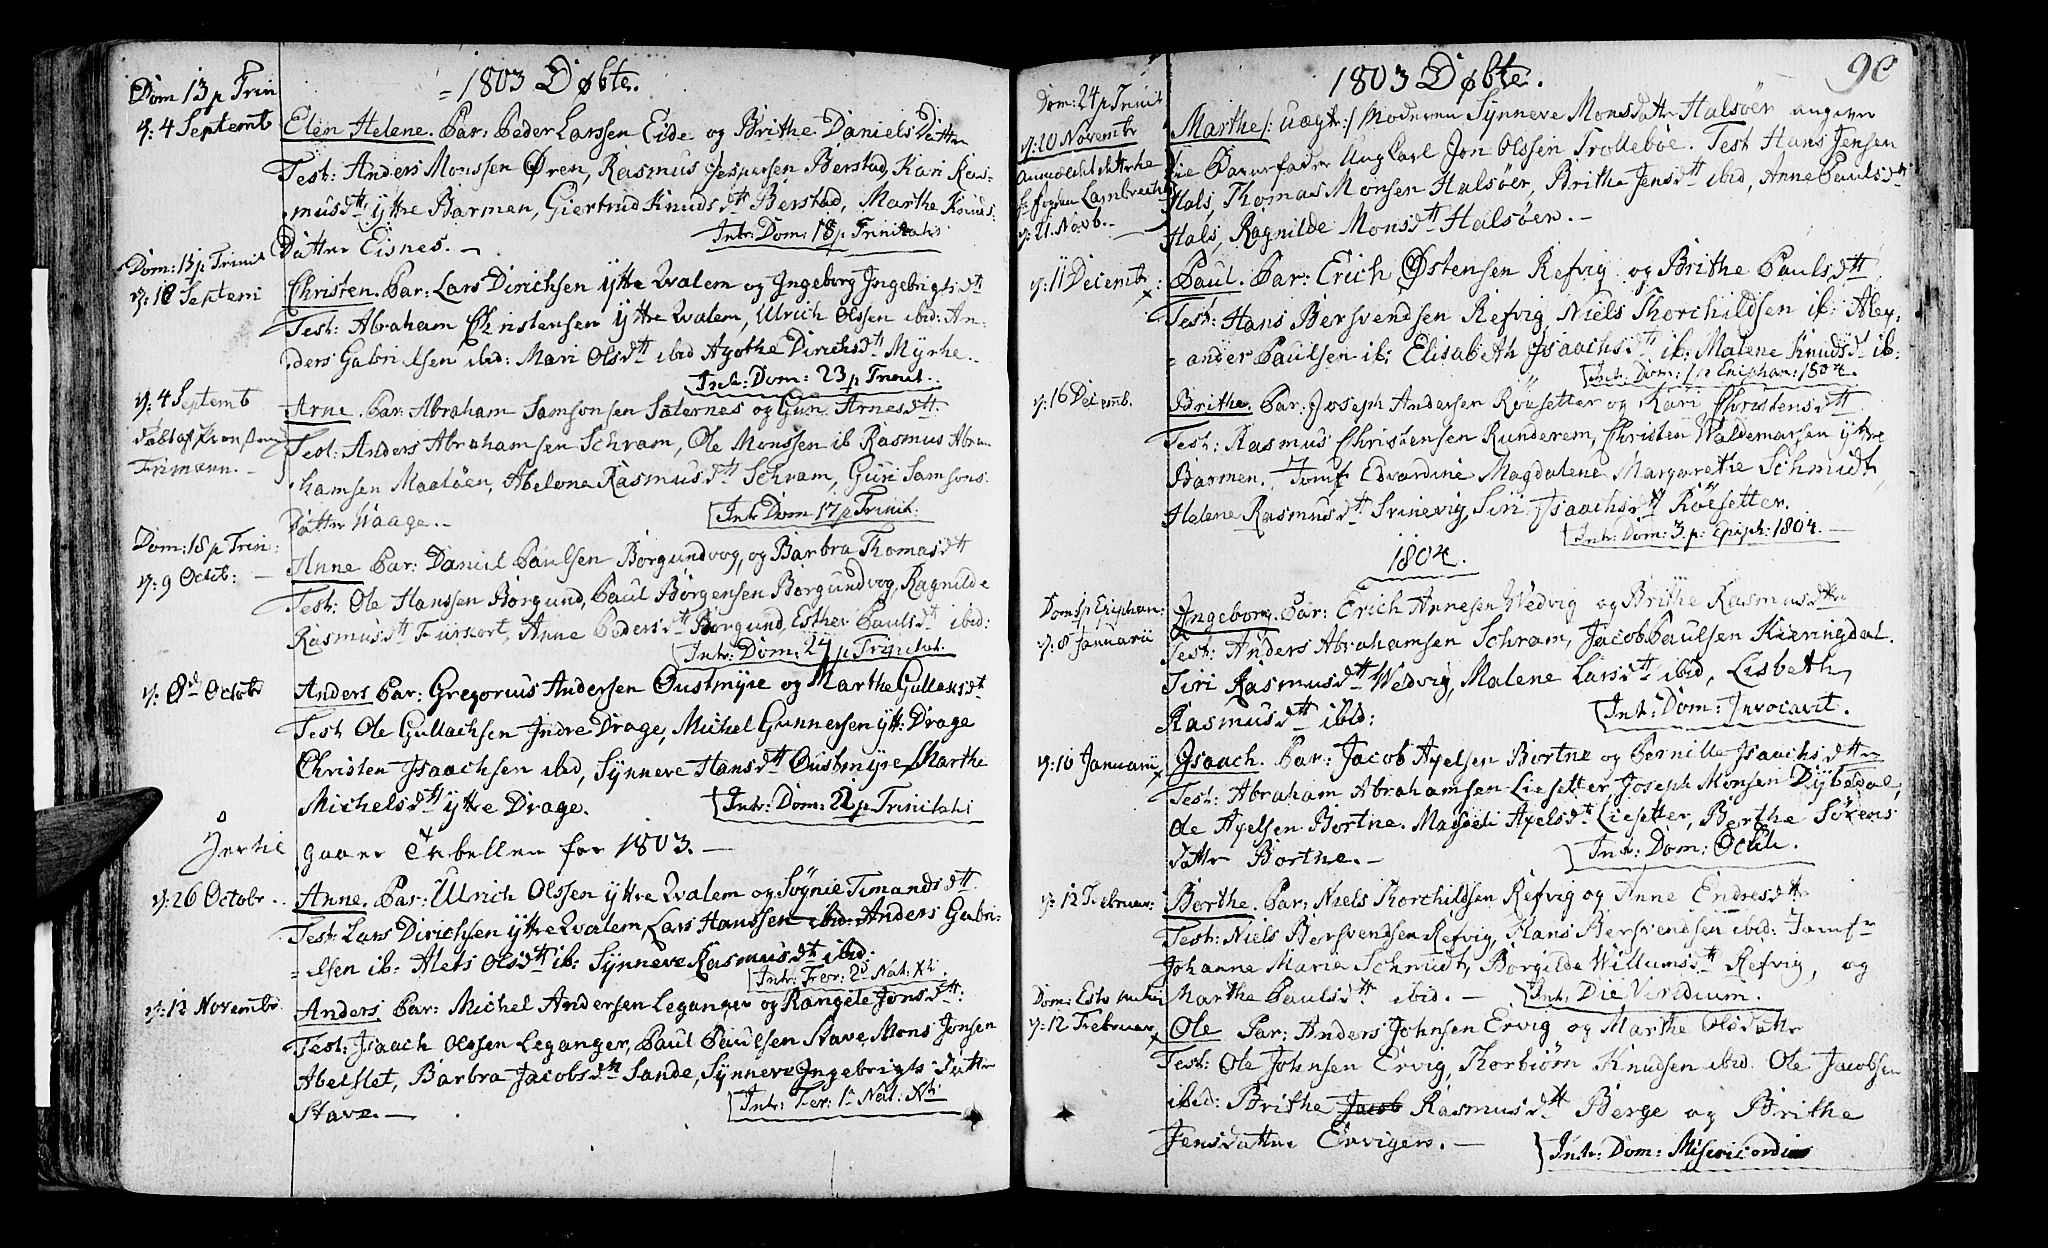 = 1803 Døbte.
Dom 13 p Trin
d: 4 Septemb
Elen Helene. Par: Peder Larssen Eide og Brithe Daniels Datter
Test: Anders Monssen Øren, Rasmus Jespersen Berstad, Kari Ras-
musdtt ÿttre Barmen, Giertrud Knudsdtt Berstad, Marthe Knuds
Datter Eisnes. -
Intr: Dom: 18 p Trinitatis
Dom: 15 p Trinit
d: 18 Septem
Christen. Par: Lars Dirichsen ÿttre Qvalem og Ingeborg Ingebrigtsdtt
Test: Abraham Christensen ÿttre Qvalem, Ulrich Olssen ibid: An-
ders Gabrielsen ibid: Mari Olsdtt ibid Agothe Dirichsdtt Mÿrhe.
Intr: Dom: 23 p Trinit.
d: 4 Septemb
døbt af
Frimann. -
Arne. Par: Abraham Samsonsen Saternes og Guri Arnesdtt.
Test: Anders Abrahamsen Schram, Ole Monssen ib Rasmus Abra
hamsen Maaløen, Abelone Rasmusdtt Schram, Guri Samsons
Datter Waage. -
Intr Dom 17 p Trinit.
Dom: 18 p Trin:
d: 9 Octob: -
Anne Par: Daniel Paulsen Borgundvog, og Barbra Thomasdtt
Test: Ole Hanssen Borgund, Paul Børgensen Borgundvog, Ragnilde
Rasmusdtt Furskort, Anne Pedersdtt Borgund, Esther Paulsdtt ibid:
Intr: Dom: 24 p Trinitat.
d: 8de Octobr
Anders Par: Gregorius Andersen Oustmÿre og Marthe Gullaksdt
Test Ole Gullachsen Indre Drage, Michel Gunnersen ÿtt: Drage
Christen Isaachsen ibid, Sÿnneve Hansdtt Oustmÿre, Marthe
Michelsdtt ÿttre Drage.
Intr: Dom: 22 p Trinitatis
Jertil gaaer Tabellen for 1803. -
d: 26 Octobr.
Anne. Par: Ulrich Olssen ÿttre Qvalem og Søgnie Timandsdtt.
Test Lars Dirichsen ÿttre Qvalem, Lars Hanssen ibid: Anders Gabri-
= elsen ib: Alets Olsdtt ib: Sÿnneve Rasmusdtt ibid:
Intr: Fer: 2d Nat: Xti.
d: 12 Novembr
Anders Par: Michel Andersen Leganger og Rangele Jonsdtt:
Test: Isaach Olssen Leganger, Paul Paulsen Stave, Mons Jonsen
Abelset, Barbra Jacobsdtt Sande, Sÿnneve Ingebrigts Datter
Stave. -
Intr: Fer: 1 Nat: Xti
1803 Døbte.
90
Dom: 24 p Trinit
d: 20 November
Anmeldt
Fogden Lambrechts
d: 21. Novb. -
Marthe /: uægt :/ Moderen Sÿnneve Monsdatter Halsøer angiver
Barnefader Ung Carl Jon Olssen Trollebøe. Test Hans Jensen
Hals, Thomas Monsen Halsøer, Brithe Jensdtt ibid, Anne Paulsdtt
Hals, Ragnilde Monsdtt Halsøer. -
d: 11 Decembr:
Paul. Par: Erich Østensen Refvig og Brithe Paulsdtt
Test: Hans Bersvendsen Refvig, Niels Thorchildsen ib: Alex:
= ander Paulsen ib: Elisabeth Isaachsdtt ib: Malene Knudsd ib:
Intr Dom: 1 p Epiphan: 1804.
d: 16 Decemb.
Brithe. Par. Joseph Andersen Røisetter og Kari Christensdtt
Test: Rasmus Christensen Runderem, Christen Waldemarsen ÿttre
Barmen. Jomf Edvardine Magdalene Margarethe Schmidt,
Helene Rasmusdtt Srinevig, Siri Isaachsdtt Røesetter.
Intr: Dom: 3. p: Epiph: 1804. -
1804.
Dom 1 p Epiphan:
d: 8 Januarii
Ingeborg. Par: Erich Annesen Wedvig og Brithe Rasmusdtter
Test: Anders Abrahamsen Schram, Jacob Paulsen Kieringdal.
Siri Rasmusdtt Wedvig, Malene Larsdtt ibid, Lisbeth
Rasmusdtt ibid:
Intr: Dom: Invocavit.
d: 10 Januarii
Isaach. Par: Jacob Axelsen Bortne og Pernille Isaachsdtter
Test: Abraham Abrahamsen Liesetter, Joseph Monsen Dÿbedal,
Ole Axelsen Bortne. Magdeli Axelsdtt Liesetter, Berthe Sørens
datter Bortne. -
Intr: Dom: Oculi.
d: 12 Februar:
Berthe. Par: Niels Thorchildsen Refvig og Anne Endresdtt
Test: Niels Bersvendsen Refvig, Hans Bersvendsen ibid: Jomfr
Johanne Marie Schmidt, Børgilde Willumsdtt Refvig, og
Marthe Paulsdtt ibid. -
Intr: Die Viridium.
Dom: Esto mihi
d: 12 Februar
Ole Par: Anders Johnsen Ervig og Marthe Olsdatter
Test: Ole Johnsen Ervig, Thorbiørn Knudsen ibid. Ole Jacobsen
ibid: Brithe Jacob Rasmusdtt Berge og Brithe
Jensdatter Ervigen. -
Intr: Dom: Misericordias